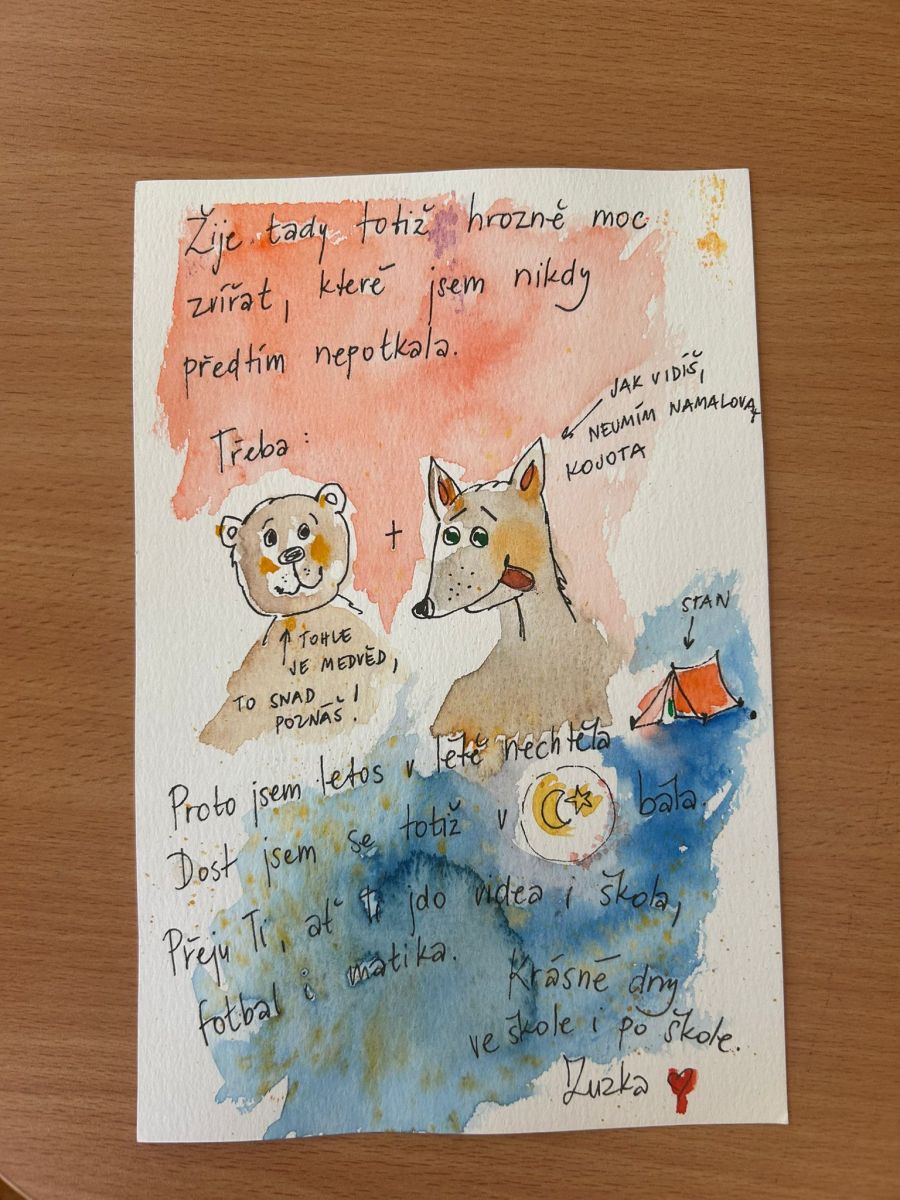 Žije tady totiž hrozně moc
zvířat, které jsem nikdy
předtím nepotkala.
JAK VIDÍŠ,
NEUMÍM NAMALOVAT
KOJOTA
Třeba:
+
TOHLE
JE MEDVĚD,
TO SNAD
POZNÁŠ!
STAN
Proto jsem letos v létě nechtěla
Dost jsem se totiž v bála.
Přeju Ti, ať Ti jdo videa i škola,
fotbal i matika.
Krásné dny
ve škole i po škole.
Zuzka